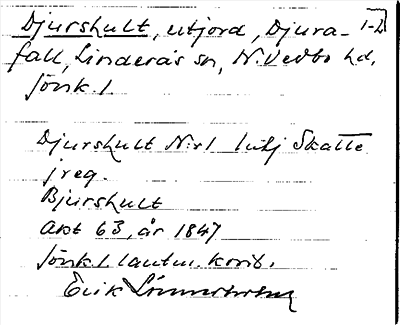 Djurshult, utjord, Djura- 1-2
fall, Linderås sn, N. Vedbo hd,
Jönk. l.
Djurshult N:r 1 utj Skatte
jreg.
Bjurshult
Akt 63, år 1847
Jönk. l. lantm. kont.
Erik